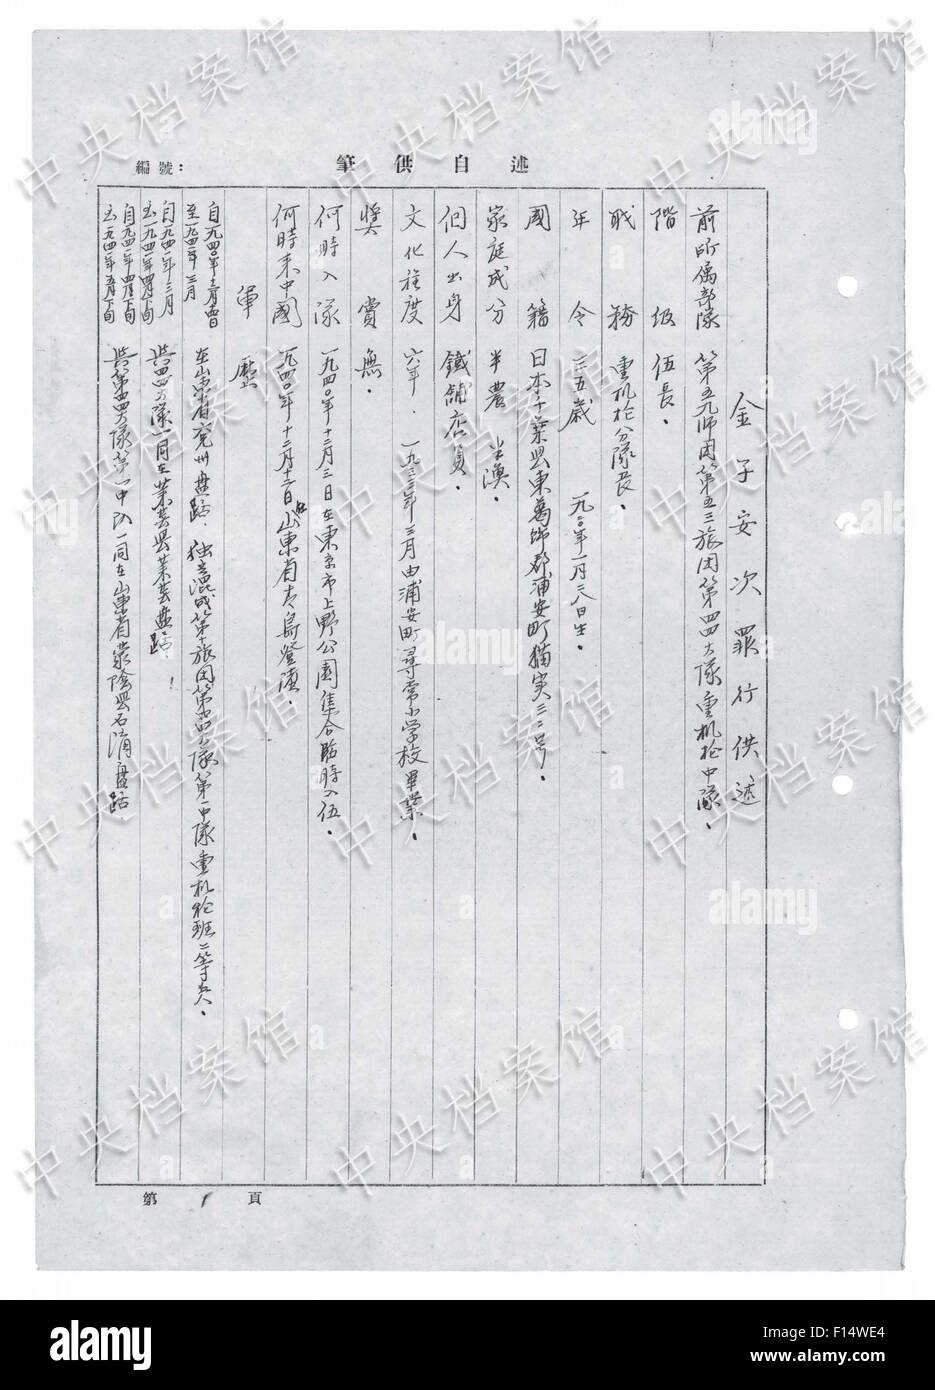 編號:
筆供自述
金子安次罪行供述
前所属部隊 第五九師团第五三旅团第四四大隊重机枪中隊.
階級 伍長.
职務 重机枪分隊長.
年令 三五歲 一九二〇年一月二八日生.
國籍 日本千葉県東葛飾郡浦安町猫実三二号.
家庭成分 半農 半漁.
個人出身 鐵舖店員.
文化程度 六年. 一九三三年三月由浦安町尋常小学校畢業.
獎賞 無.
何時入隊 一九四〇年十二月三日在東京市上野公園集合臨時入伍.
何時来中國 一九四〇年十二月十二日由山東省青島登陸.
軍歷
自一九四〇年十二月
至一九四一年三月 在山東省兗州盘踞. 独立混成第十旅团第四四大隊第一中隊重机枪班二等兵.
自一九四一年三月
至一九四一年四月下旬 與四四大隊一同在莱芸県莱芸盘踞.
自一九四一年四月下旬
至一九四一年五月下旬 與第四四大隊第一中队一同在山東省蒙陰県石涌盘踞
第 1 頁
中央档案馆
alamy
F14WE4
www.alamy.com